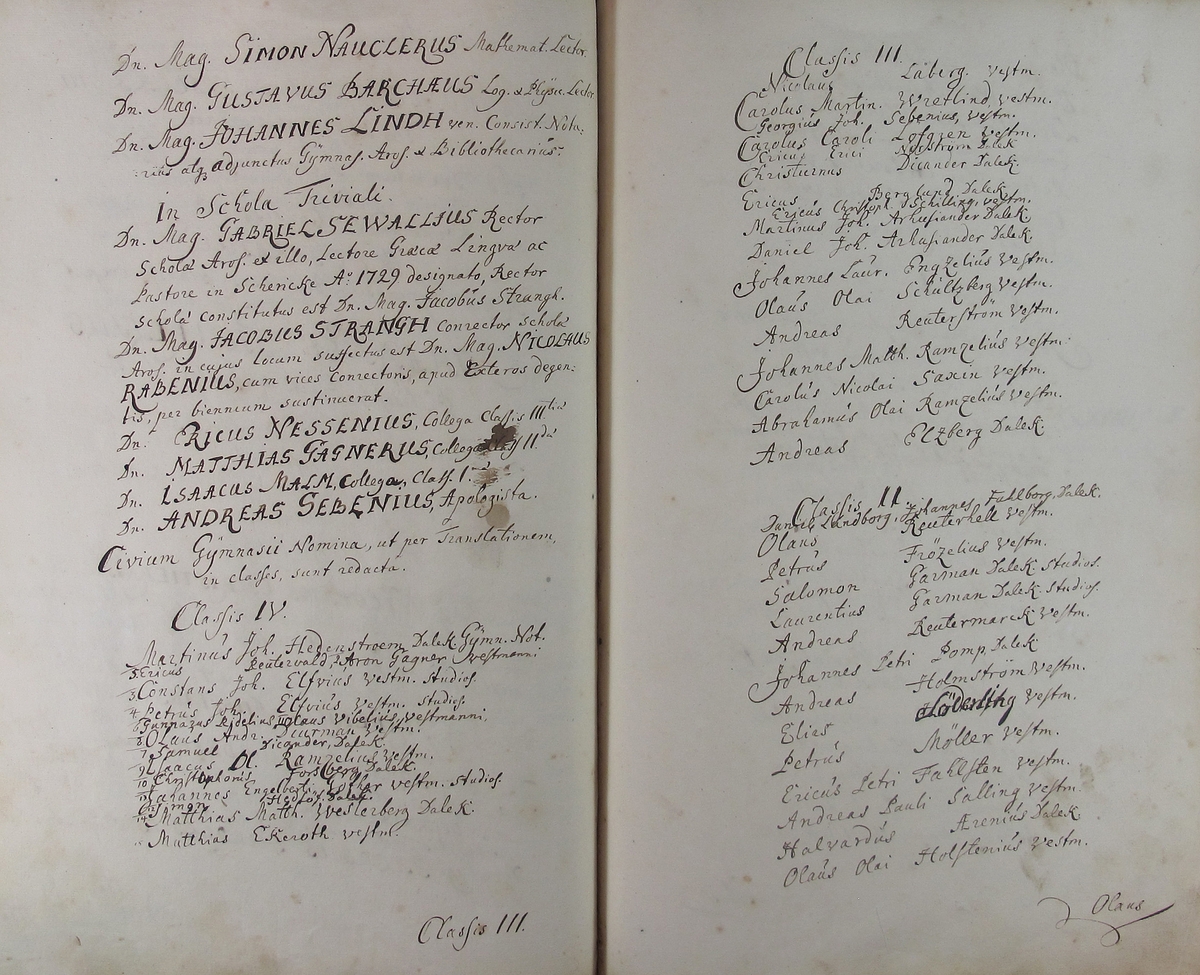 Dn. Mag. SIMON NAUCLERUS Mathemat. Lector.
Dn. Mag. GUSTAVUS BARCHÆUS Log. & Physic. Lector
Dn. Mag. JOHANNES LINDH ven. Consist. Nota:
rius atq adjunctus Gÿmnas. Aros. & Bibliothecarius.
In Schola Triviali.
Dn. Mag. GABRIEL SEWALLIUS Rector
Scholæ Aros. et illo, Lectore Græcæ Linguæ ac
Pastore in Schericke Ao. 1729 designato, Rector
Scholæ constitutus est Dn. Mag. Jacobus Strangh.
Dn. Mag. JACOBUS STRANGH Conrector Scholæ
Aros. in cujus locum suffectus est Dn. Mag. NICOLAUS
RABENIUS, cum vices Conrectoris, apud Exteros degen:
tis, per biennium sustinuerat.
Dn. ERICUS NESSENIUS, Collega Classis III tiæ
Dn. MATTHIAS GAGNERUS, Collega II dæ
Dn. ISAACUS MALM, Collega, Class. I.
Dn. ANDREAS SEBENIUS, Apologista.
Civium Gÿmnasii Nomina, ut per Translationem,
in classes, sunt redacta.
Classis IV.
Martinus Joh. Hedenstroem Dalek. Gÿmn. Not.
5. Ericus Reuterwald, Aron Gagner Vestmanni
3 Constans Joh. Elfvius Vestm. Studios.
4 Petrus Joh. Elfvius Vestm. Studios.
6 Gunnarus Fidelius Olaus Vibelius, Vestmanni,
8 Olaus Andr. Diurman Vestm.
7 Samuel Dicander, Dalek.
9 Isaacus Ol. Ramzelius Vestm.
10 Christophorus Forsberg Dalek.
Johannes Engelberti Vestm. Studios.
Simon Dalek.
Matthias Matth. Westerberg Dalek.
Matthias Ekeroth Vestm.
Classis III.
Classis III.
Nicolaus Låberg. Vestm.
Carolus Martin. Wretlind, Vestm.
Georgius Joh. Sebenius, Vestm.
Carolus Caroli Lofgren Vestm.
Ericus Erici Norström Dalek
Christiernus Dicander Dalek.
Ericus Berglund Dalek.
Ericus Christoph. Schilling, Vestm.
Martinus Joh. Arhusiander Dalek.
Daniel Joh. Arhusiander Dalek.
Johannes Laur. Engzelius Vestm.
Olaus Olai Schultzberg Vestm.
Andreas Reuterström Vestm.
Johannes Matth. Ramzelius Vestm:
Carolus Nicolai Saxin Vestm.
Abrahamus Olai Ramzelius Vestm.
Andreas Elzberg Dalek.
Classis II.
Daniel Lundborg, Johannes Fahlborg, Dalek.
Olaus Reuterhell Vestm.
Petrus Frözelius Vestm.
Salomon Garman Dalek. Studios.
Laurentius Garman Dalek. Studios.
Andreas Reutermarck Vestm.
Johannes Petri Pomp Dalek
Andreas Holmström Vestm.
Elias Vestm.
Petrus Möller Vestm.
Ericus Petri Fahlsten Vestm.
Andreas Pauli Salling Vestm.
Halvardus Ærenius Dalek.
Olaus Olai Holstenius Vestm.
Olaus